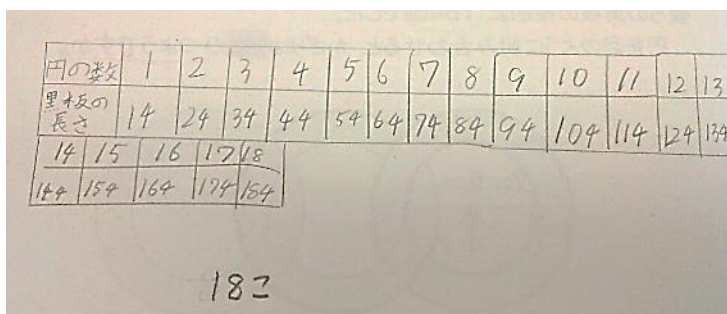 円の数 1 2 3 4 5 6 7 8 9 10 11 12 13
黒板の
長さ 14 24 34 44 54 64 74 84 94 104 114 124 134
14 15 16 17 18
144 154 164 174 184
18こ